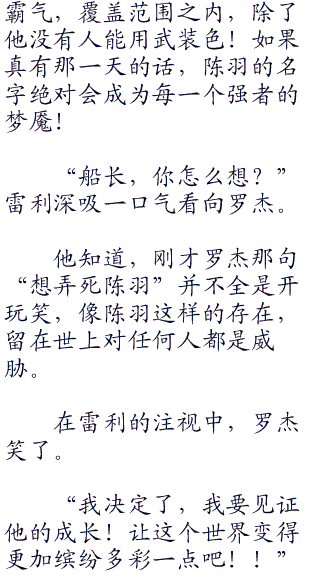 霸气，覆盖范围之内，除了
他没有人能用武装色！如果
真有那一天的话，陈羽的名
字绝对会成为每一个强者的
梦魇！
“船长，你怎么想？”
雷利深吸一口气看向罗杰。
他知道，刚才罗杰那句
“想弄死陈羽”并不全是开
玩笑，像陈羽这样的存在，
留在世上对任何人都是威
胁。
在雷利的注视中，罗杰
笑了。
“我决定了，我要见证
他的成长！让这个世界变得
更加缤纷多彩一点吧！！”